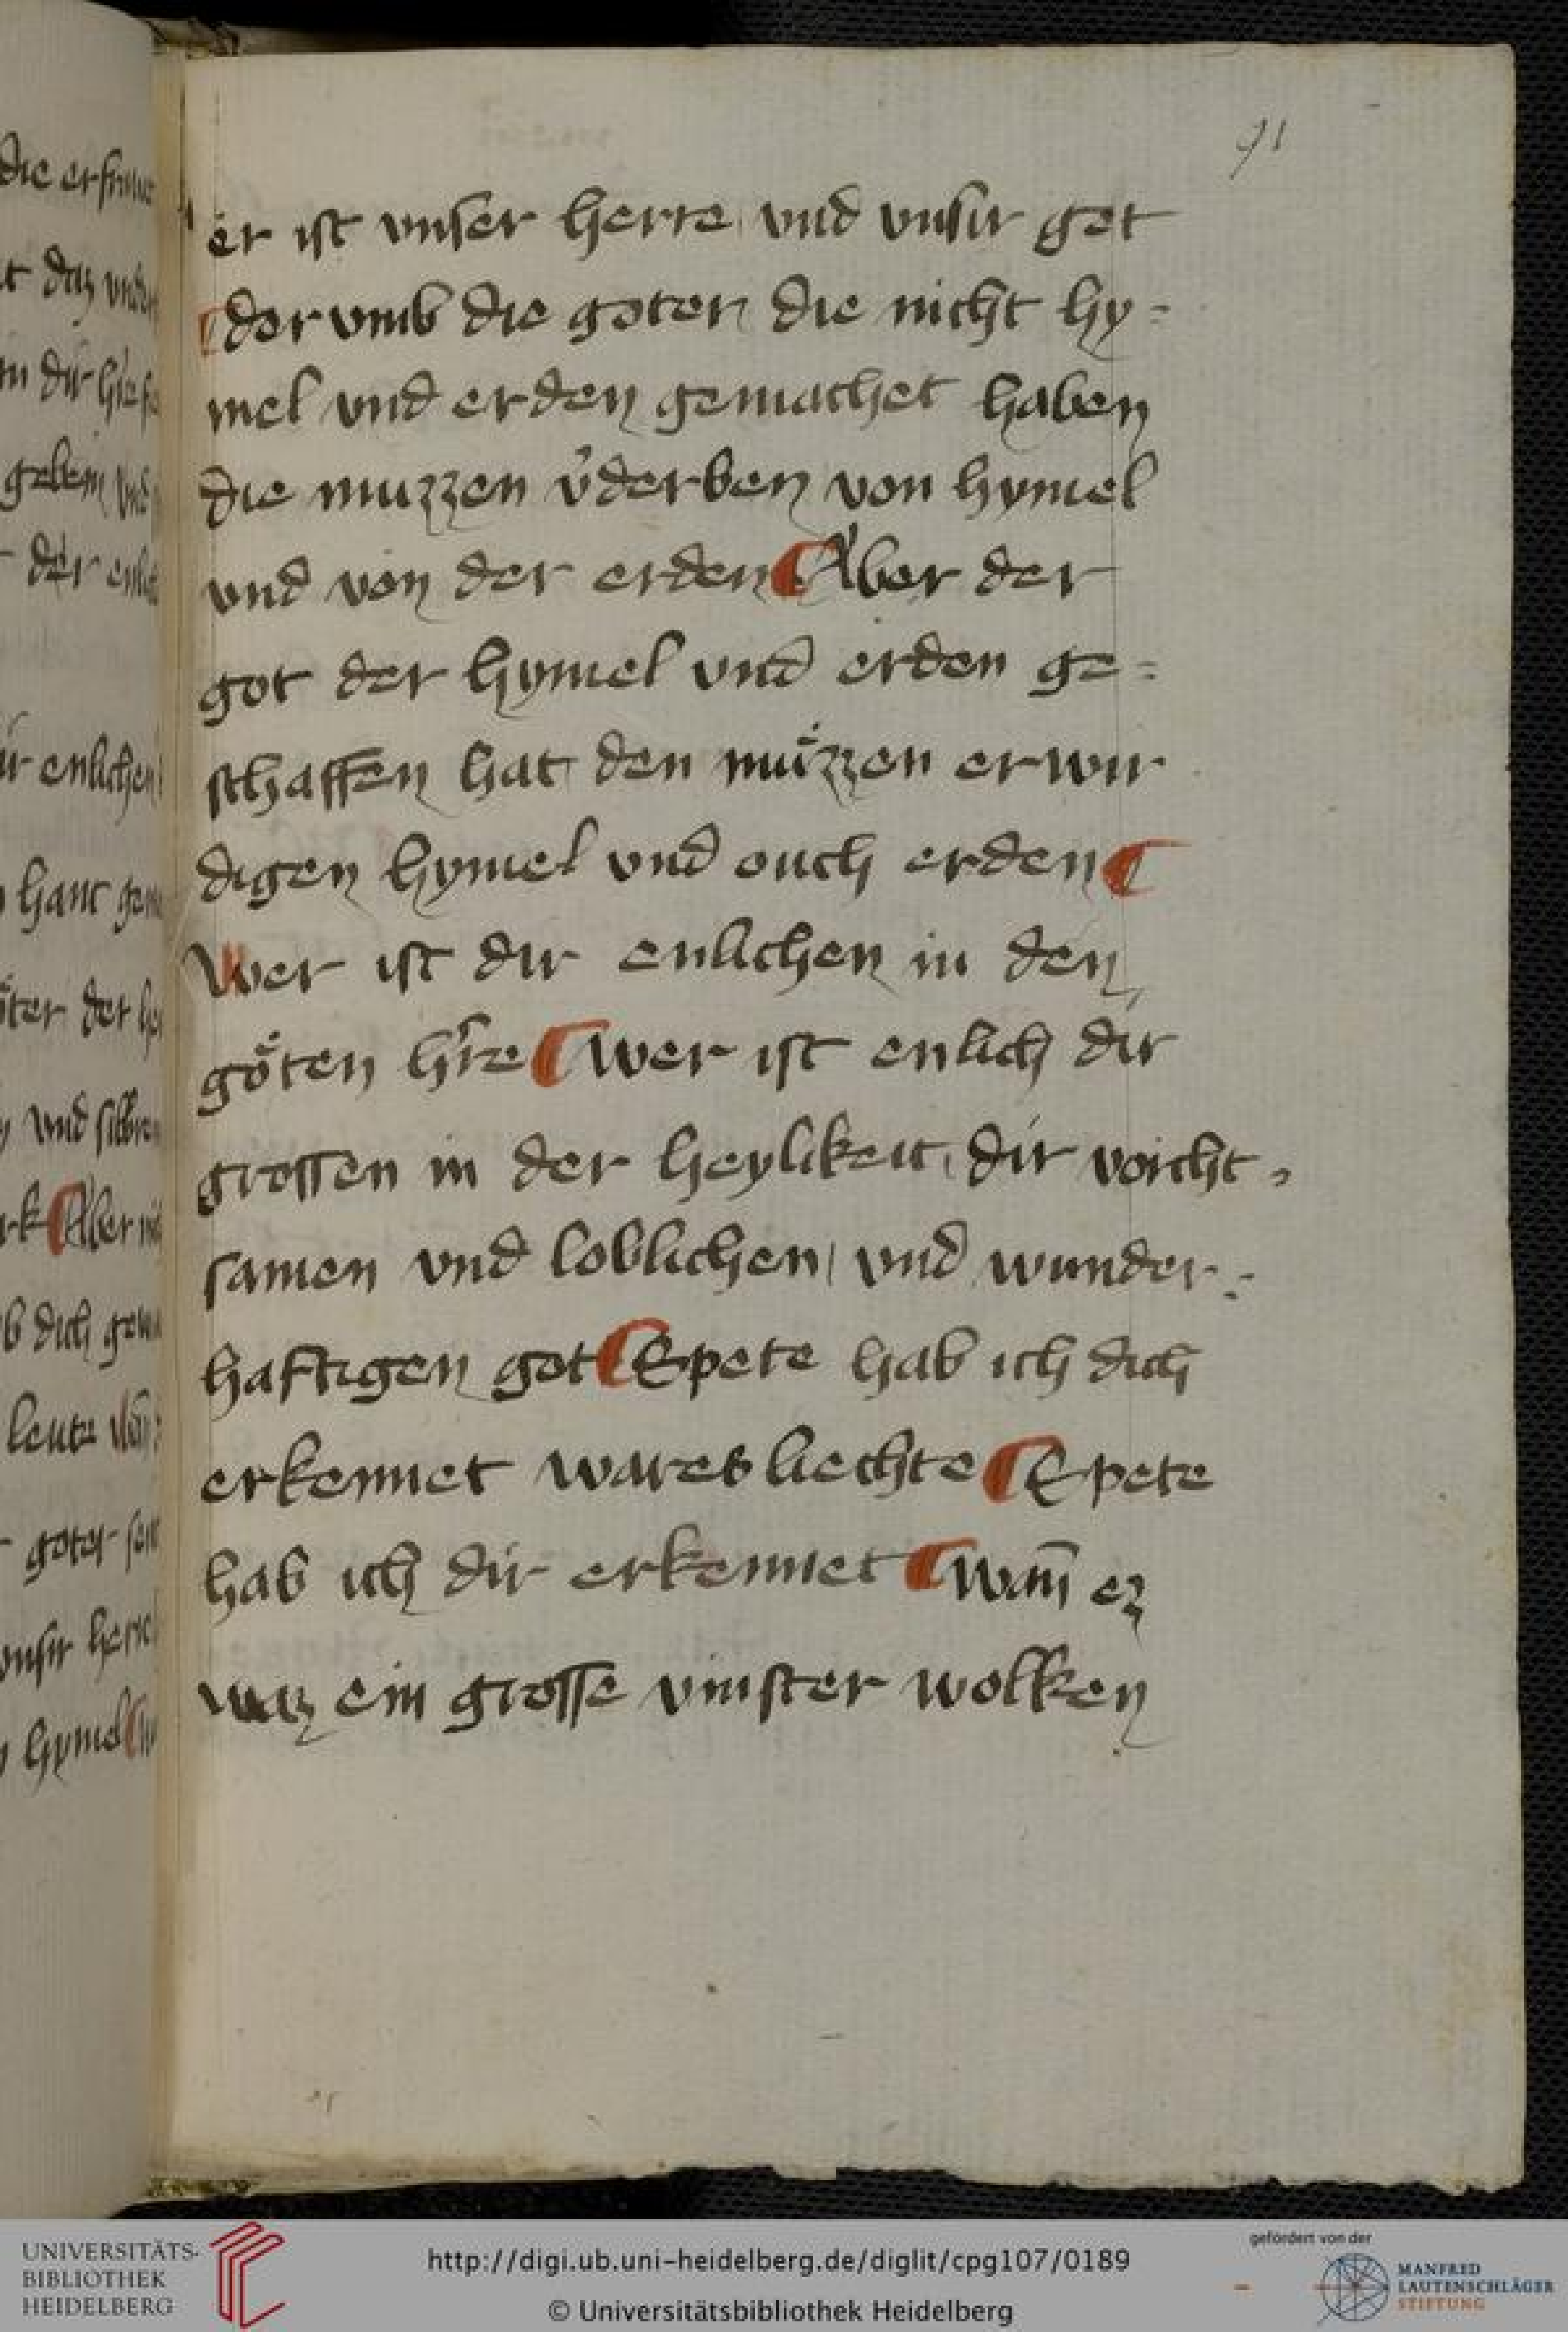 91
er ist vnser herre vnd vnsir got
¶ dor vmb die goter die nicht hy=
mel vnd erden gemachet haben
die muzzen v̓derben von hymel
vnd von der erden ¶ Aber der
got der hymel vnd erden ge=
schaffen hat den muͤzzen erwir
digen hymel vnd ouch erden ¶
Wer ist dir enlichen in den
goͤten hr̓re ¶ wer ist enlich dir
grossen in der heylikeit dir vorcht=
samen vnd loblichen vnd wunder=
haftigen got ¶ Spete hab ich dich
erkennet wares liechte ¶ Spete
hab ich dir erkennet ¶ wan̄ ez
waz ein grosse vinster wolken
die er
daz
in dir
geben vnd
der
ir enlichen
hant
der
vnd
Aber
dich
leute
goter
vnsir
hymel
UNIVERSITÄTS-
BIBLIOTHEK
HEIDELBERG
http://digi.ub.uni-heidelberg.de/diglit/cpg107/0189
© Universitätsbibliothek Heidelberg
gefördert von der
MANFRED
LAUTENSCHLÄGER
STIFTUNG